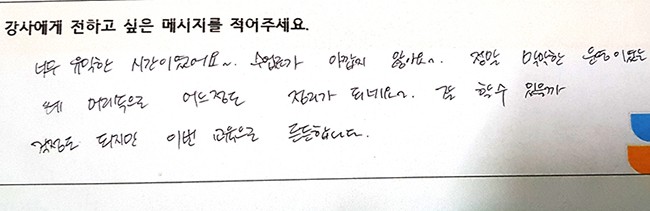 강사에게 전하고 싶은 메시지를 적어주세요.
너무 유익한 시간이였어요~. 수업료가 아깝지 않아요~. 정말 막막한 운영이었는
데 머리속으로 어느정도 정리가 되네요~ 잘 할수 있을까
걱정도 되지만 이번 교육으로 든든합니다.